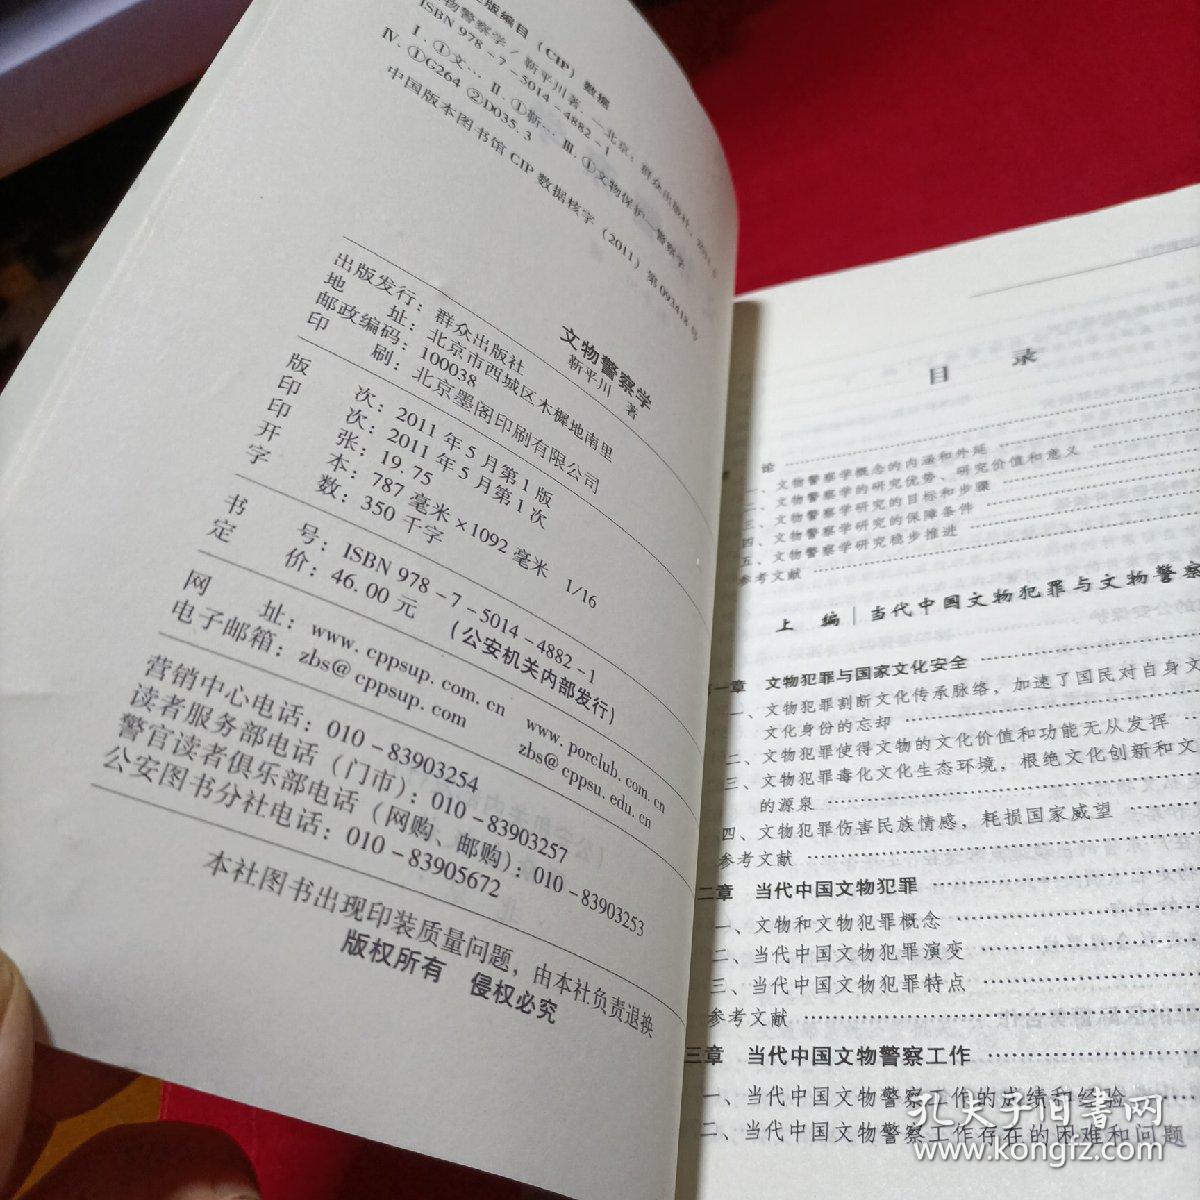 版编目（CIP）数据
物警察学／靳平川著．—北京：群众出版社，2011.5
ISBN 978-7-5014-4882-1
Ⅰ．①文… Ⅱ．①靳… Ⅲ．①文物保护—警察学
Ⅳ．①G264 ②D035.3
中国版本图书馆CIP数据核字（2011）第093418号
文物警察学
靳平川 著
出版发行：群众出版社
地 址：北京市西城区木樨地南里
邮政编码：100038
印 刷：北京墨阁印刷有限公司
版 次：2011年5月第1版
印 次：2011年5月第1次
印 张：19.75
开 本：787毫米×1092毫米 1/16
字 数：350千字
书 号：ISBN 978-7-5014-4882-1
定 价：46.00元 （公安机关内部发行）
网 址：www.cppsup.com.cn www.porclub.com.cn
电子邮箱：zbs@cppsup.com zbs@cppsu.edu.cn
营销中心电话：010-83903254
读者服务部电话（门市）：010-83903257
警官读者俱乐部电话（网购、邮购）：010-83903253
公安图书分社电话：010-83905672
本社图书出现印装质量问题，由本社负责退换
版权所有 侵权必究
目 录
论
一、文物警察学概念的内涵和外延
二、文物警察学的研究优势、研究价值和意义
三、文物警察学研究的目标和步骤
四、文物警察学研究的保障条件
五、文物警察学研究稳步推进
参考文献
上 编｜当代中国文物犯罪与文物警察
第一章 文物犯罪与国家文化安全
一、文物犯罪割断文化传承脉络，加速了国民对自身文
化身份的忘却
二、文物犯罪使得文物的文化价值和功能无从发挥
三、文物犯罪毒化文化生态环境，根绝文化创新和文
的源泉
四、文物犯罪伤害民族情感，耗损国家威望
参考文献
二章 当代中国文物犯罪
一、文物和文物犯罪概念
二、当代中国文物犯罪演变
三、当代中国文物犯罪特点
参考文献
三章 当代中国文物警察工作
一、当代中国文物警察工作的成绩和经验
二、当代中国文物警察工作存在的困难和问题
孔夫子旧书网
www.kongfz.com